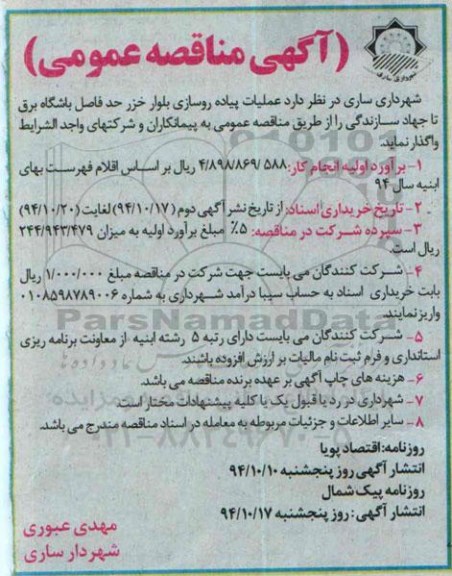 (آگهی مناقصه عمومی)
شهرداری ساری
شهرداری ساری در نظر دارد عملیات پیاده روسازی بلوار خزر حد فاصل باشگاه برق
تا جهاد سازندگی را از طریق مناقصه عمومی به پیمانکاران و شرکتهای واجد الشرایط
واگذار نماید.
۱- برآورد اولیه انجام کار: ۴/۸۹۸/۸۶۹/۵۸۸ ریال بر اساس اقلام فهرست بهای
ابنیه سال ۹۴
۲- تاریخ خریداری اسناد: از تاریخ نشر آگهی دوم (۹۴/۱۰/۱۷) لغایت (۹۴/۱۰/۲۰)
۳- سپرده شرکت در مناقصه: ۵٪ مبلغ برآورد اولیه به میزان ۲۴۴/۹۴۳/۴۷۹
ریال است.
۴- شرکت کنندگان می بایست جهت شرکت در مناقصه مبلغ ۱/۰۰۰/۰۰۰ ریال
بابت خریداری اسناد به حساب سیبا درآمد شهرداری به شماره ۰۱۰۸۵۹۸۷۸۹۰۰۶
واریز نمایند.
۵- شرکت کنندگان می بایست دارای رتبه ۵ رشته ابنیه از معاونت برنامه ریزی
استانداری و فرم ثبت نام مالیات بر ارزش افزوده باشند.
۶- هزینه های چاپ آگهی بر عهده برنده مناقصه می باشد.
۷- شهرداری در رد یا قبول یک یا کلیه پیشنهادات مختار است.
۸- سایر اطلاعات و جزئیات مربوطه به معامله در اسناد مناقصه مندرج می باشد.
روزنامه: اقتصاد پویا
انتشار آگهی روز پنجشنبه ۹۴/۱۰/۱۰
روزنامه پیک شمال
انتشار آگهی: روز پنجشنبه ۹۴/۱۰/۱۷
مهدی عبوری
شهردار ساری
ParsNamadData
۰۲۱-۸۸۳۴۹۶۷۰-۵